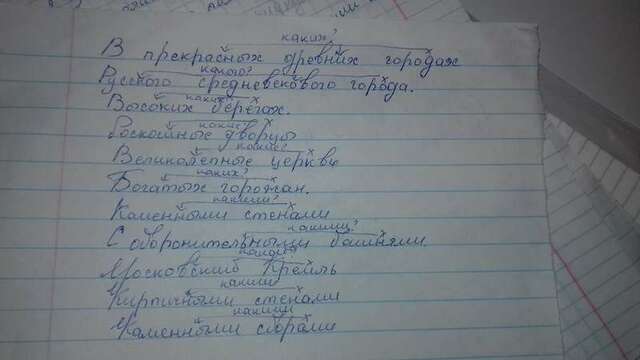 каких?
В прекрасных древних городах
какого?
Русского средневекового города.
каких
Высоких берегах.
какие?
Роскошные дворцы
какие?
Великолепные церкви
каких?
Богатых горожан.
какими?
Каменными стенами
какими?
С оборонительными башнями.
какой?
Московский Кремль
какими
Кирпичными стенами
какими
Каменными